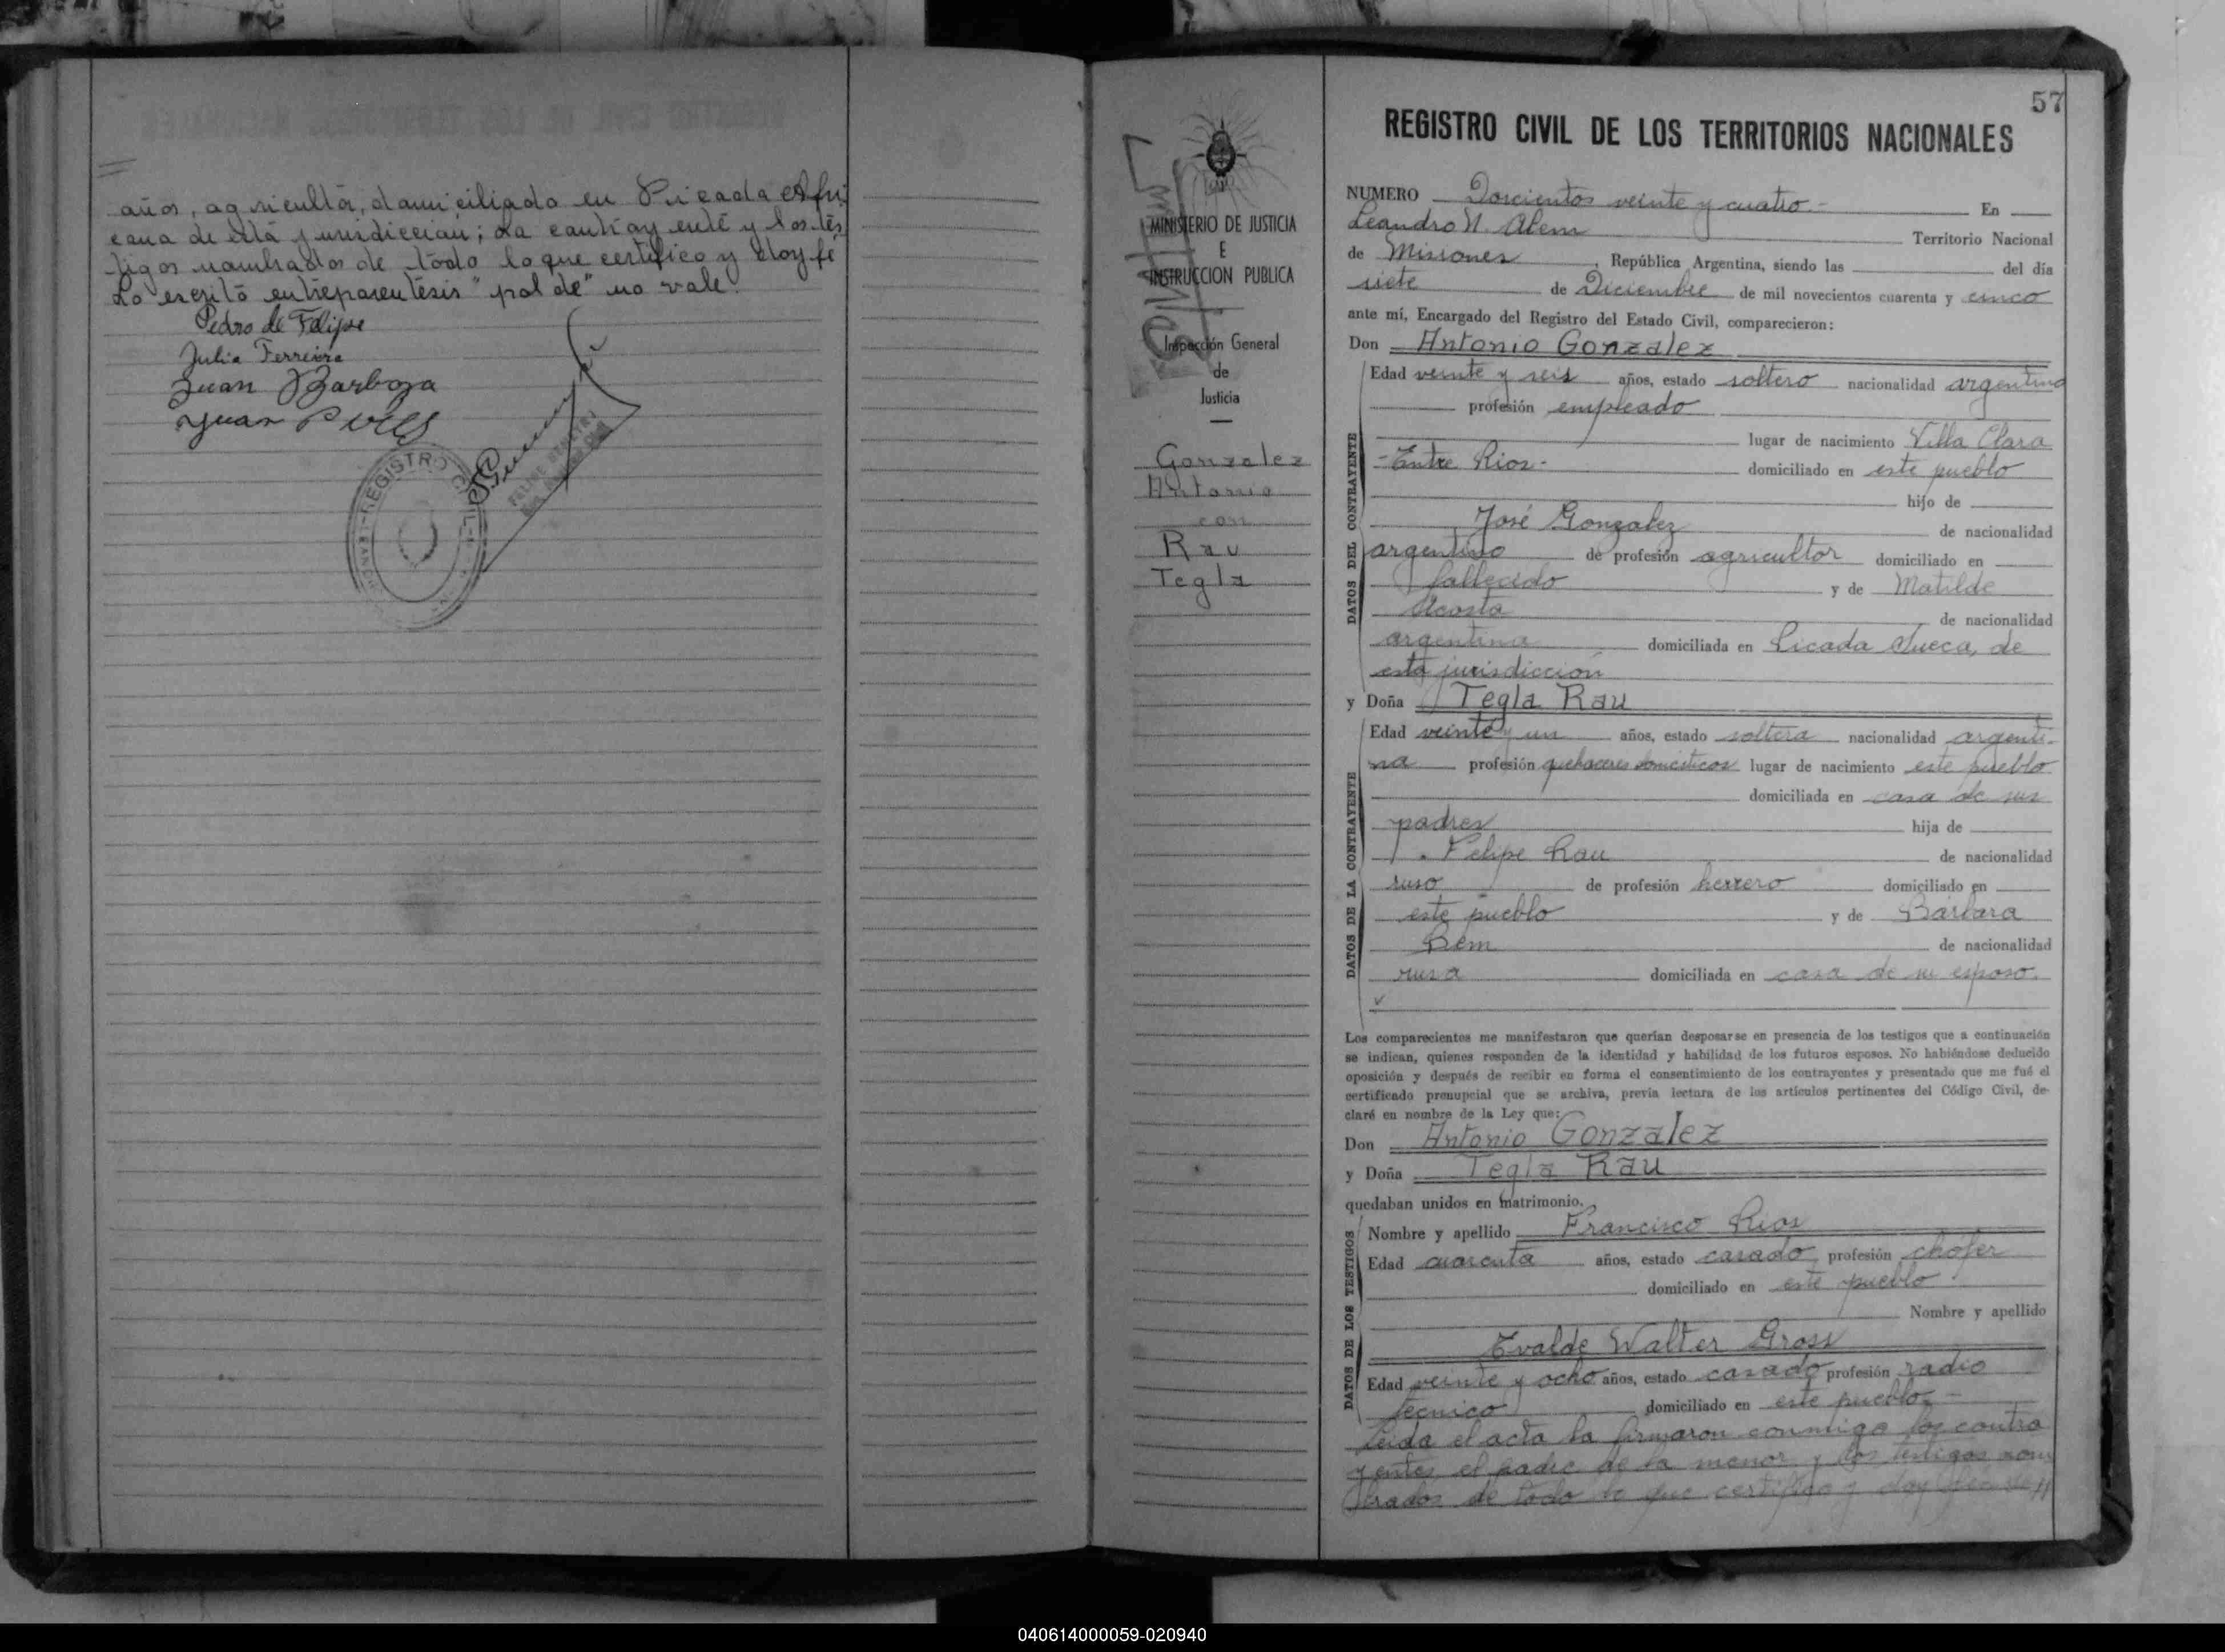 años, agricultor, domiciliado en Picada Afri
cana de esta jurisdiccion; La contrayente y los tes
tigos nombrados de todo lo que certifico y doy fé
Lo escrito entreparentesis "pal de" no vale.
Pedro de Felipe
Julia Ferreira
Juan Barboza
Juan
REGISTRO CIVIL
57
REGISTRO CIVIL DE LOS TERRITORIOS NACIONALES
MINISTERIO DE JUSTICIA
E
INSTRUCCION PUBLICA
Inspección General
de
Justicia
Gonzalez
Antonio
con
Rau
Tegla
NUMERO Doscientos veinte y cuatro.- En
Leandro N. Alem Territorio Nacional
de Misiones, República Argentina, siendo las del día
siete de Diciembre de mil novecientos cuarenta y cinco
ante mí, Encargado del Registro del Estado Civil, comparecieron:
Don Antonio Gonzalez
DATOS DEL CONTRAYENTE
Edad veinte y seis años, estado soltero nacionalidad argentino
profesión empleado
lugar de nacimiento Villa Clara
-Entre Rios- domiciliado en este pueblo
hijo de
José Gonzalez de nacionalidad
argentino de profesión agricultor domiciliado en
fallecido y de Matilde
Acosta de nacionalidad
argentina domiciliada en Picada Sueca, de
esta jurisdicción
y Doña Tegla Rau
DATOS DE LA CONTRAYENTE
Edad veinte y un años, estado soltera nacionalidad argenti-
na profesión quehaceres domésticos lugar de nacimiento este pueblo
domiciliada en casa de sus
padres hija de
Felipe Rau de nacionalidad
ruso de profesión herrero domiciliado en
este pueblo y de Bárbara
Bem de nacionalidad
rusa domiciliada en casa de su esposo.
Los comparecientes me manifestaron que querían desposarse en presencia de los testigos que a continuación
se indican, quienes responden de la identidad y habilidad de los futuros esposos. No habiéndose deducido
oposición y después de recibir en forma el consentimiento de los contrayentes y presentado que me fué el
certificado prenupcial que se archiva, previa lectura de los artículos pertinentes del Código Civil, de-
claré en nombre de la Ley que:
Don Antonio Gonzalez
y Doña Tegla Rau
quedaban unidos en matrimonio.
DATOS DE LOS TESTIGOS
Nombre y apellido Francisco Rios
Edad cuarenta años, estado casado profesión chofer
domiciliado en este pueblo
Nombre y apellido
Evalde Walter Gross
Edad veinte y ocho años, estado casado profesión radio
técnico domiciliado en este pueblo.-
Leida el acta la firmaron conmigo los contra
yentes, el padre de la menor y los testigos nom
brados de todo lo que certifico y doy fé
040614000059-020940